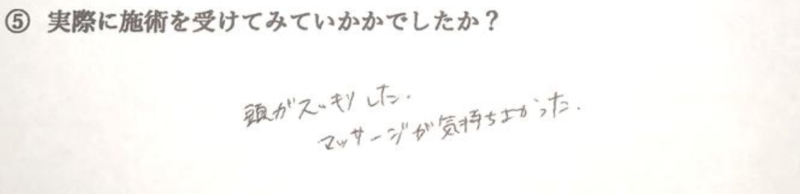 ⑤ 実際に施術を受けてみていかかでしたか？
頭がスッキリした.
マッサージが気持ちよかった.